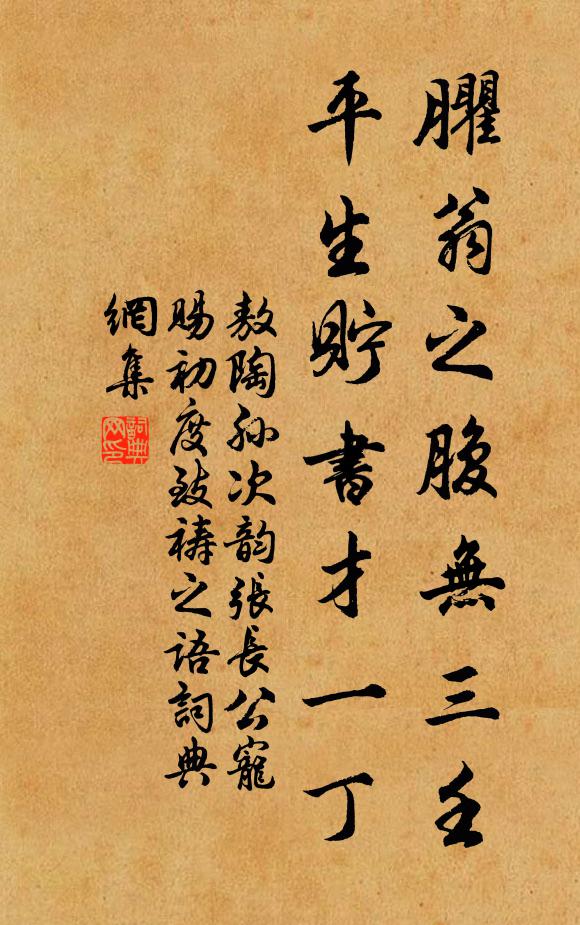 臞翁之腹無三壬
平生貯書才一丁
敖陶孫次韵張長公寵
賜初度致禱之語詞典
網集
詞典
网印